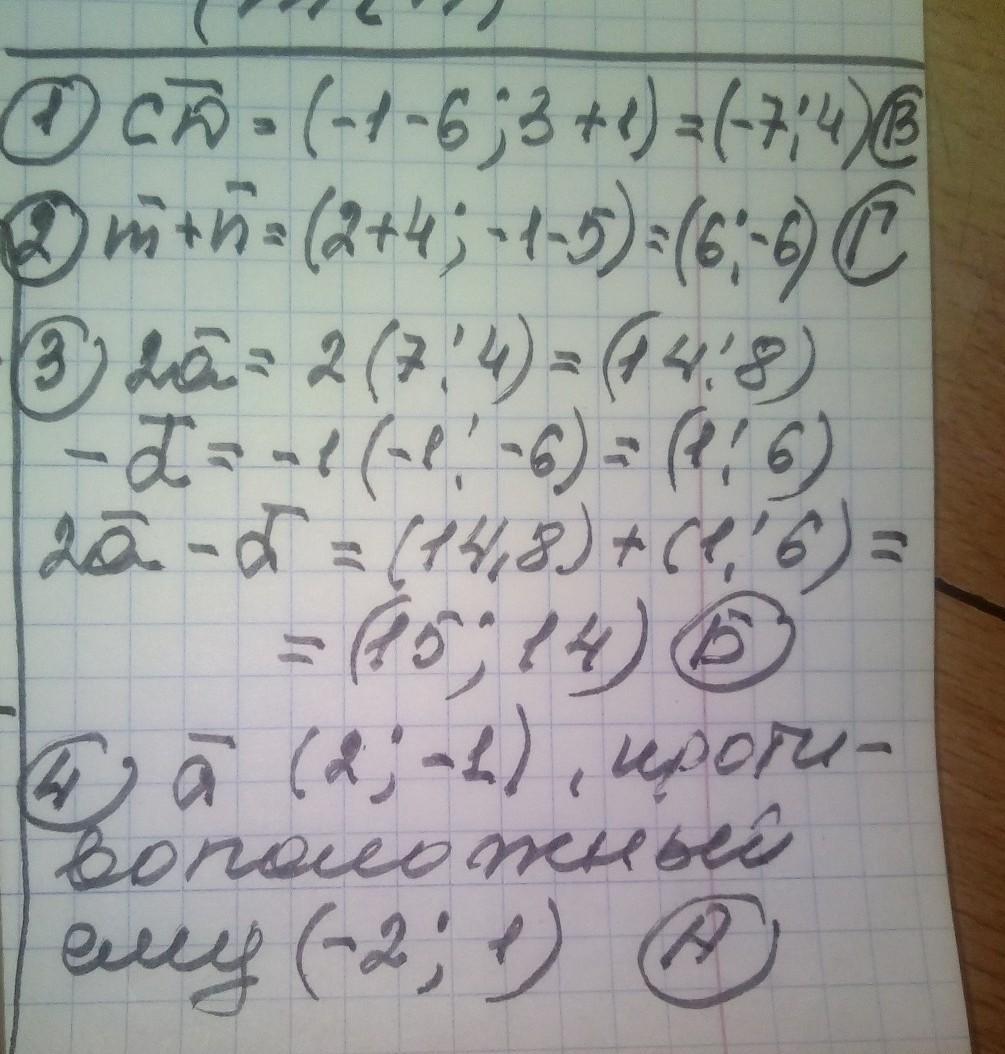 ① CD̅ = (-1-6; 3+1) = (-7; 4) В
② m̅+n̅ = (2+4; -1-5) = (6; -6) Г
③ 2a̅ = 2(7; 4) = (14; 8)
-b̅ = -1(-1; -6) = (1; 6)
2a̅ - b̅ = (14; 8) + (1; 6) =
= (15; 14) Б
④ a̅ (2; -1), проти-
воположный
ему (-2; 1) А